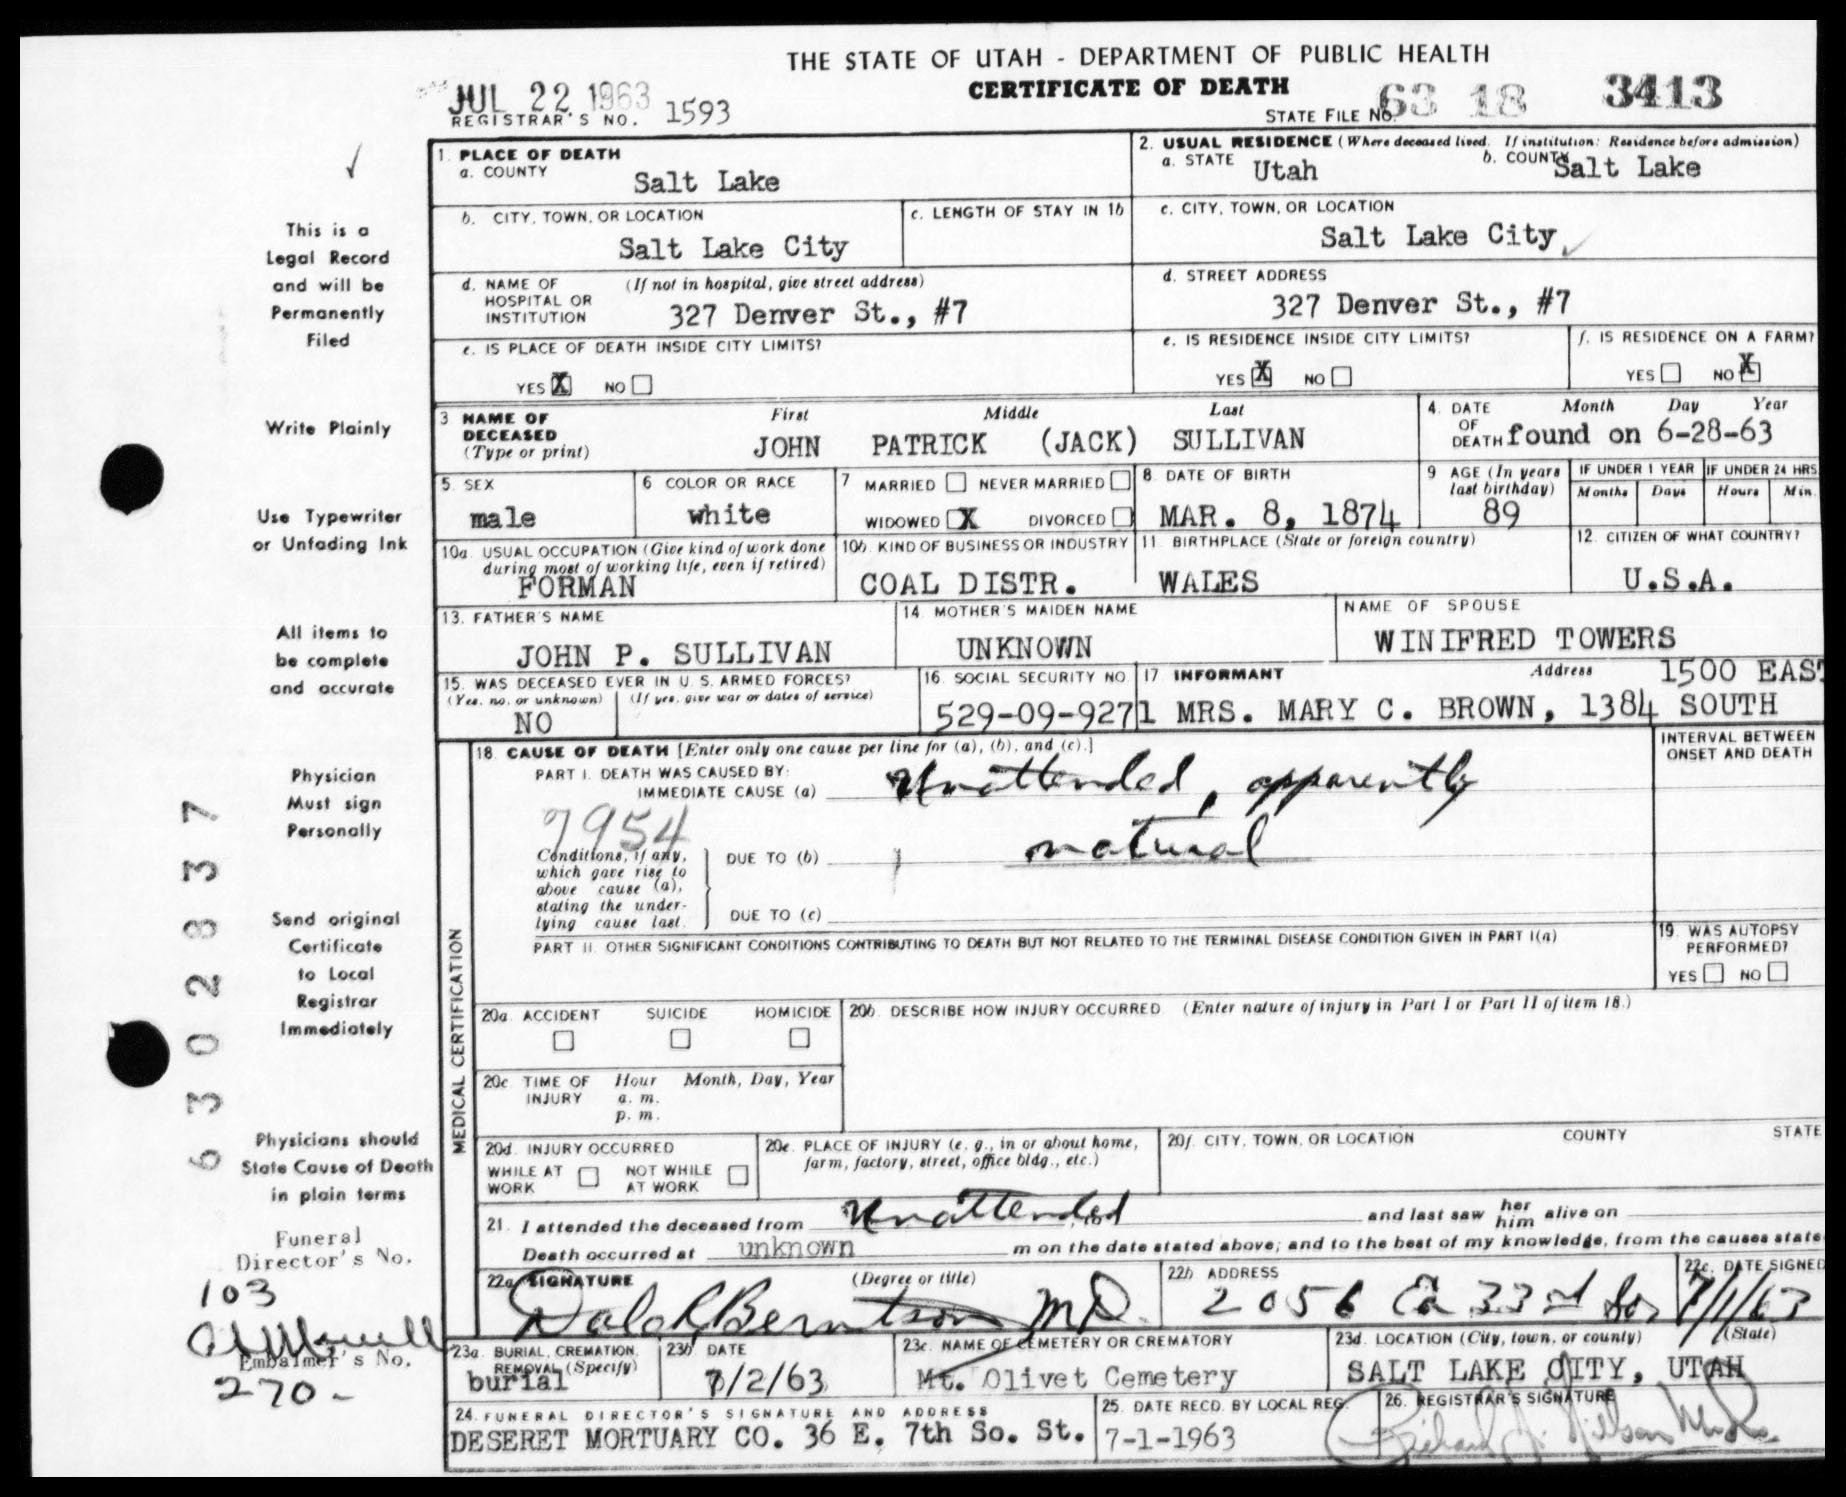 THE STATE OF UTAH - DEPARTMENT OF PUBLIC HEALTH
CERTIFICATE OF DEATH
JUL 22 1963
REGISTRAR'S NO. 1593
STATE FILE NO. 63 18 3413
This is a
Legal Record
and will be
Permanently
Filed
Write Plainly
Use Typewriter
or Unfading Ink
All items to
be complete
and accurate
Physician
Must sign
Personally
Send original
Certificate
to Local
Registrar
Immediately
Physicians should
State Cause of Death
in plain terms
Funeral
Director's No.
103
Embalmer's No.
270-
6302837
1. PLACE OF DEATH
a. COUNTY Salt Lake
2. USUAL RESIDENCE (Where deceased lived. If institution: Residence before admission)
a. STATE Utah b. COUNTY Salt Lake
b. CITY, TOWN, OR LOCATION
Salt Lake City
c. LENGTH OF STAY IN 1b
c. CITY, TOWN, OR LOCATION
Salt Lake City
d. NAME OF HOSPITAL OR INSTITUTION (If not in hospital, give street address)
327 Denver St., #7
d. STREET ADDRESS
327 Denver St., #7
e. IS PLACE OF DEATH INSIDE CITY LIMITS?
YES X NO
e. IS RESIDENCE INSIDE CITY LIMITS?
YES X NO
f. IS RESIDENCE ON A FARM?
YES NO X
3 NAME OF DECEASED (Type or print)
First Middle Last
JOHN PATRICK (JACK) SULLIVAN
4. DATE OF DEATH Month Day Year
found on 6-28-63
5. SEX
male
6 COLOR OR RACE
white
7 MARRIED NEVER MARRIED
WIDOWED X DIVORCED
8. DATE OF BIRTH
MAR. 8, 1874
9 AGE (In years last birthday)
89
IF UNDER 1 YEAR
Months Days
IF UNDER 24 HRS
Hours Min.
10a. USUAL OCCUPATION (Give kind of work done during most of working life, even if retired)
FORMAN
10b. KIND OF BUSINESS OR INDUSTRY
COAL DISTR.
11. BIRTHPLACE (State or foreign country)
WALES
12. CITIZEN OF WHAT COUNTRY?
U.S.A.
13. FATHER'S NAME
JOHN P. SULLIVAN
14 MOTHER'S MAIDEN NAME
UNKNOWN
NAME OF SPOUSE
WINIFRED TOWERS
15. WAS DECEASED EVER IN U. S. ARMED FORCES?
(Yes, no, or unknown) (If yes, give war or dates of service)
NO
16. SOCIAL SECURITY NO.
529-09-9271
17 INFORMANT Address 1500 EAST
MRS. MARY C. BROWN, 1384 SOUTH
MEDICAL CERTIFICATION
18. CAUSE OF DEATH [Enter only one cause per line for (a), (b), and (c).]
INTERVAL BETWEEN ONSET AND DEATH
PART I. DEATH WAS CAUSED BY:
IMMEDIATE CAUSE (a) Unattended, apparently
7954
Conditions, if any, which gave rise to above cause (a), stating the underlying cause last.
DUE TO (b) natural
DUE TO (c)
PART II. OTHER SIGNIFICANT CONDITIONS CONTRIBUTING TO DEATH BUT NOT RELATED TO THE TERMINAL DISEASE CONDITION GIVEN IN PART I(a)
19. WAS AUTOPSY PERFORMED?
YES NO
20a. ACCIDENT SUICIDE HOMICIDE
20b. DESCRIBE HOW INJURY OCCURRED (Enter nature of injury in Part I or Part II of item 18.)
20c TIME OF INJURY Hour Month, Day, Year
a. m.
p. m.
20d. INJURY OCCURRED
WHILE AT WORK NOT WHILE AT WORK
20e. PLACE OF INJURY (e. g., in or about home, farm, factory, street, office bldg., etc.)
20f. CITY, TOWN, OR LOCATION COUNTY STATE
21. I attended the deceased from Unattended, to and last saw her him alive on
Death occurred at unknown m on the date stated above; and to the best of my knowledge, from the causes state
22a. SIGNATURE (Degree or title)
Berntson MD.
22b ADDRESS
2056 Ea 33rd So.
22c. DATE SIGNED
7/1/63
23a. BURIAL, CREMATION, REMOVAL (Specify)
burial
23b. DATE
7/2/63
23c. NAME OF CEMETERY OR CREMATORY
Mt. Olivet Cemetery
23d. LOCATION (City, town, or county) (State)
SALT LAKE CITY, UTAH
24. FUNERAL DIRECTOR'S SIGNATURE AND ADDRESS
DESERET MORTUARY CO. 36 E. 7th So. St.
25. DATE RECD. BY LOCAL REG.
7-1-1963
26. REGISTRAR'S SIGNATURE
Richard J. Nelson